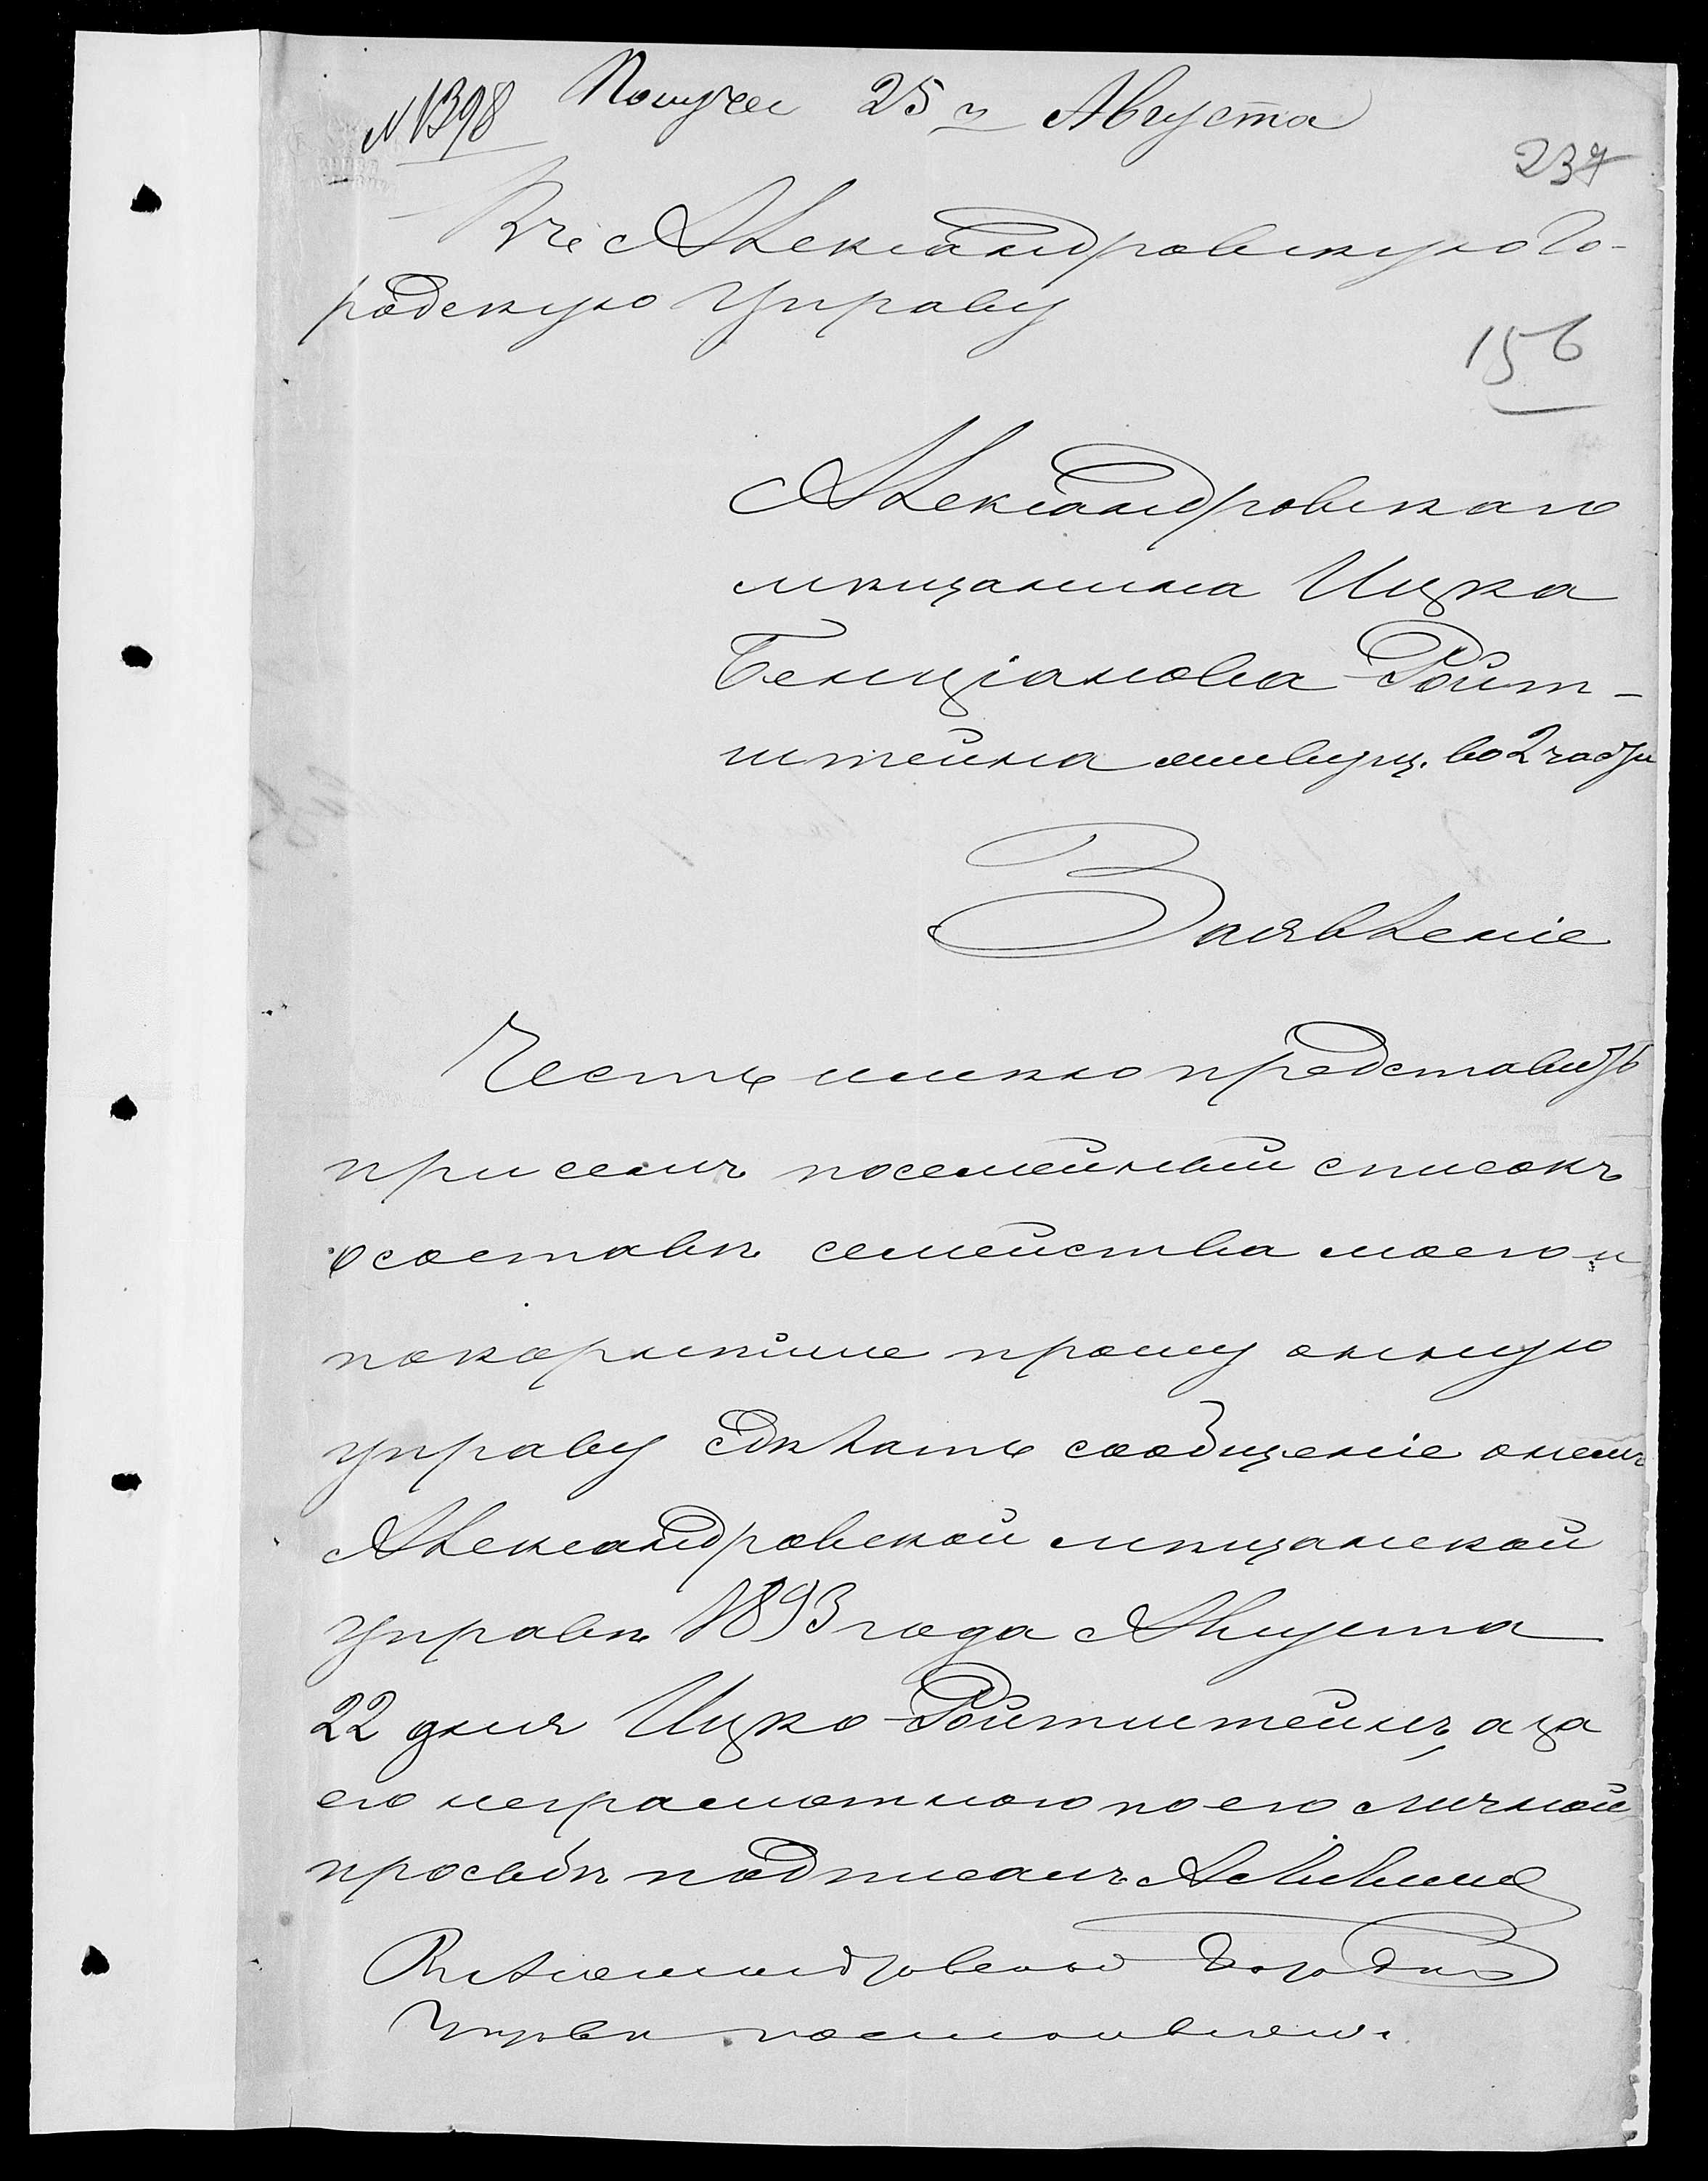 N 1398 Получен 25го Августа
237
Въ Александровскую Го-
родскую Управу
156
Александровскаго
мѣщанина Ицка
Бенціанова Ройт-
штейна живущ. во 2 части
Заявленіе
Честь имѣю представить
при семъ посемейный списокъ
о составѣ семейства моего и
покорнѣйше прошу онную
управу сдѣлать сообщеніе о немъ
Александровской мѣщанской
управѣ 1893 года Августа
22 дня Ицко Ройтштейнъ, а за
его неграмотного по его личной
просьбѣ подписалъ
Въ Александровской Городской
Управѣ